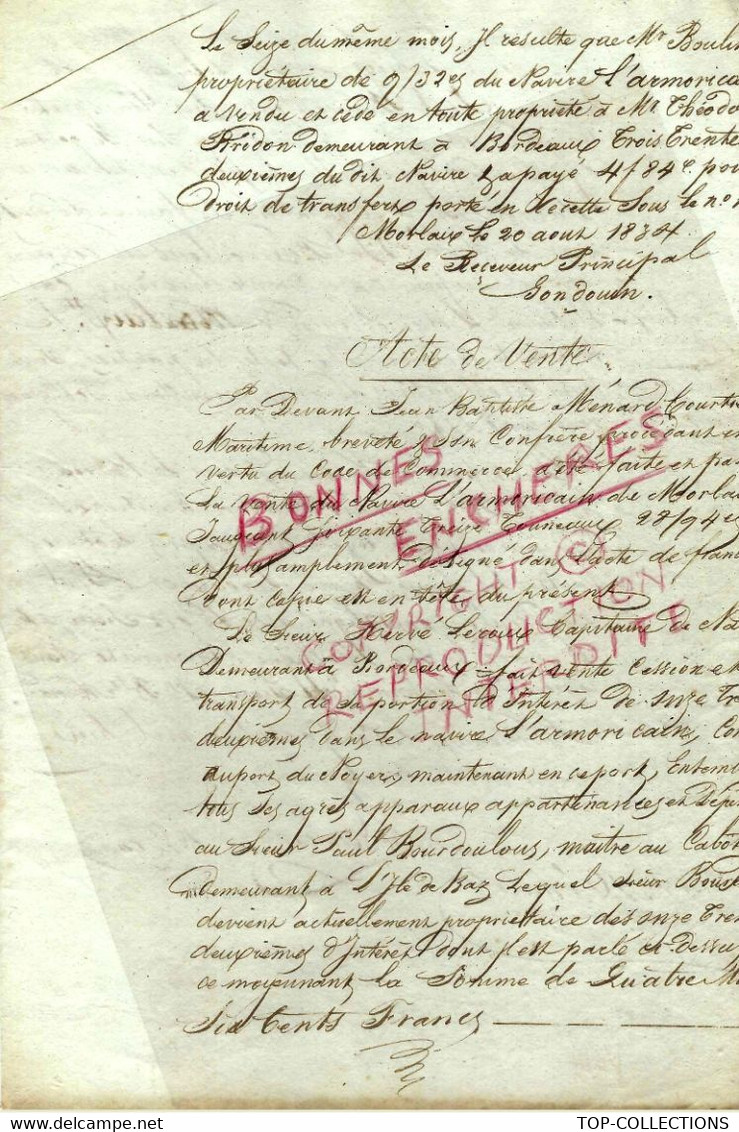 Le Seize du même mois, Il resulte que Mr Boulin
propriétaire de 9/32es du Navire L'armorica
a vendu et cédé en toute propriété à Mr Théodo
Fridon demeurant à Bordeaux Trois Trente
deuxièmes du dit Navire & a payé 4f 84c pou
droit de transfert, porté en recette sous le no
Morlaix le 20 aout 1834.
Le Receveur Principal
Gondouin.
Acte de Vente
Par Devant Jean Baptiste Ménard Courti
Maritime, breveté & son Confrère procédant e
vertu du Code de Commerce, a été faite et pa
La vente du Navire L'armoricain de Morla
Jaugeant Soixante Treize Tonneaux 28/94e
et plus amplement désigné dans l'acte de fran
dont copie est en tête du présent
Le Sieur Hervé Leroux Capitaine de Na
Demeurant à Bordeaux fait vente cession et
transport de sa portion d'Intérêt de onze Tre
deuxièmes dans le navire L'armoricain, Con
au port du Noyer, maintenant en ce port, Ensem
tous ses agrès apparaux appartenances et Dépe
au Sieur Paul Bourdoulous, maitre au Cabot
demeurant à L'Ile de Baz Lequel sieur Bou
devient actuellement propriétaire des onze Tren
deuxièmes d'Intérêt dont il est parlé ci-dessu
ce moyennant la Somme de Quatre M
Six Cents Francs
BONNES
ENCHERES
COPYRIGHT ©
REPRODUCTION
INTERDITE
TOP-COLLECTIONS